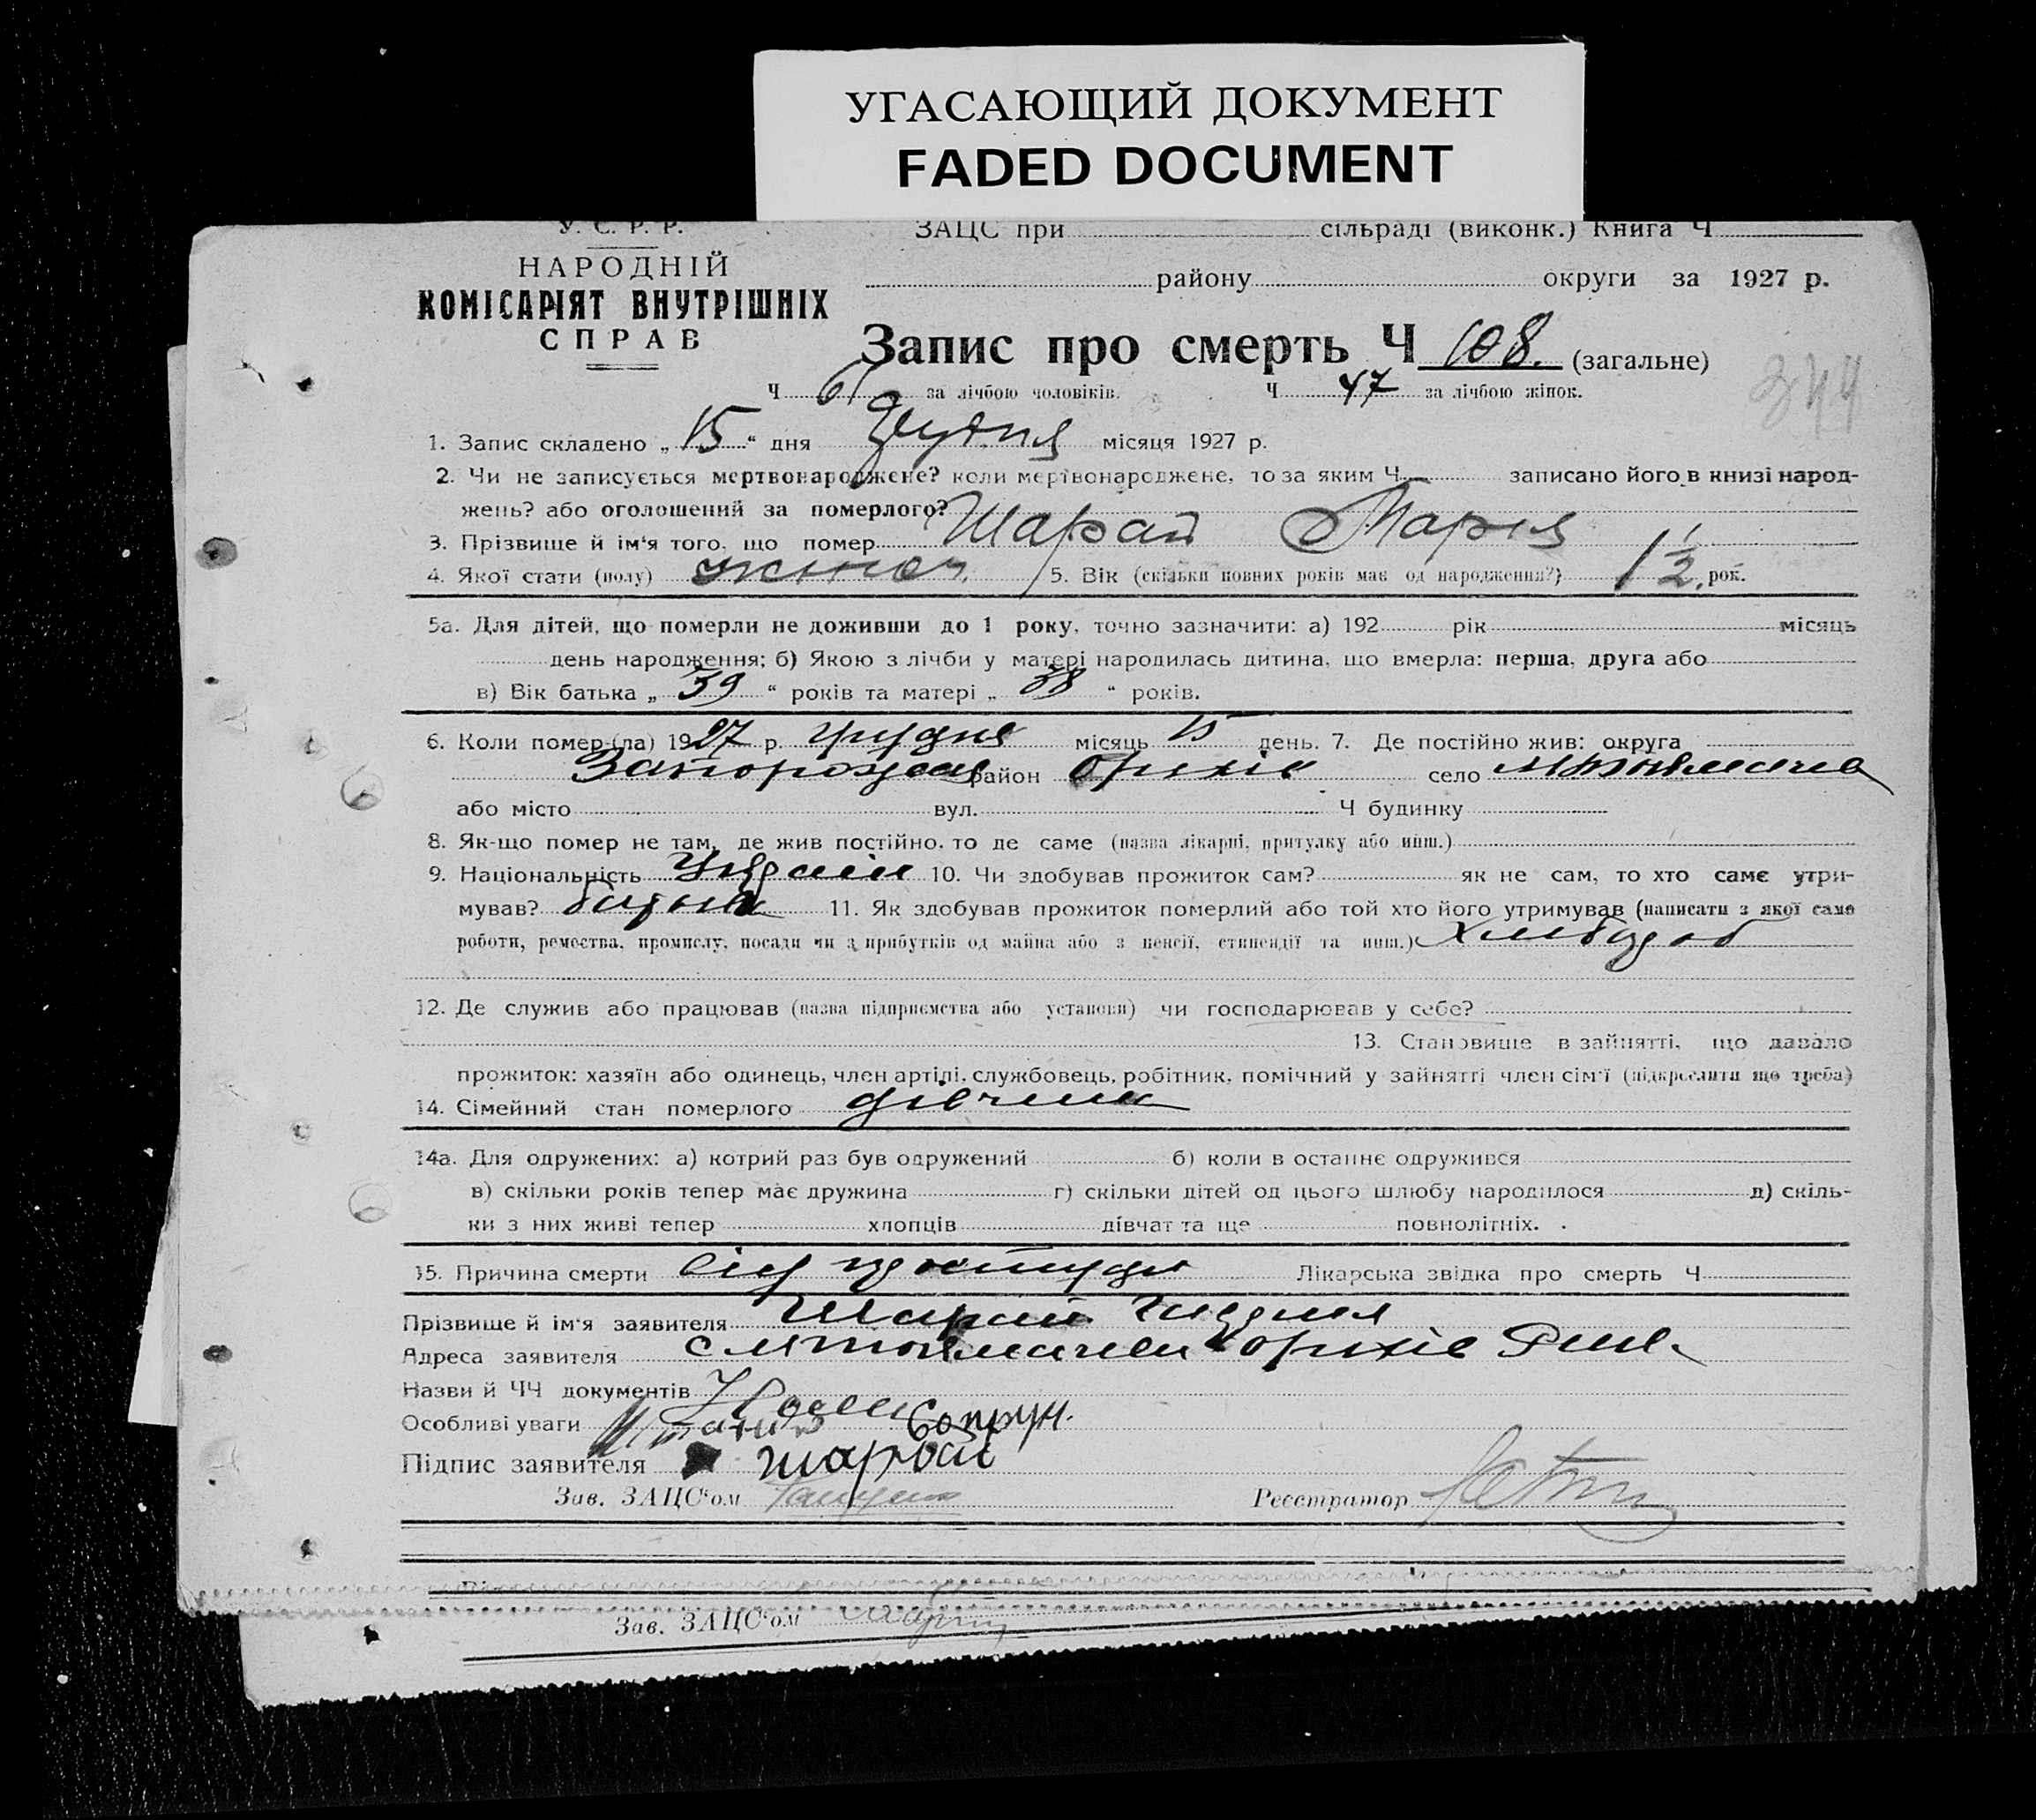 УГАСАЮЩИЙ ДОКУМЕНТ
FADED DOCUMENT
У. С. Р. Р.
ЗАЦС при сільраді (виконк.) Книга Ч
НАРОДНІЙ
КОМІСАРІЯТ ВНУТРІШНІХ
СПРАВ
району округи за 1927 р.
Запис про смерть Ч 108. (загальне)
344
Ч 61 за лічбою чоловіків. Ч 47 за лічбою жінок.
1. Запис складено „ 15 “ дня Грудня місяця 1927 р.
2. Чи не записується мертвонароджене? коли мертвонароджене, то за яким Ч записано його в книзі народ-
жень? або оголошений за померлого?
3. Прізвище й ім'я того, що помер Шарай Марія
4. Якої стати (полу) жіноч. 5. Вік (скільки повних років мав од народження?) 1 1/2 рок.
5а. Для дітей, що померли не доживши до 1 року, точно зазначити: а) 192 рік місяць
день народження; б) Якою з лічби у матері народилась дитина, що вмерла: перша, друга або
в) Вік батька „ 39 “ років та матері „ 38 “ років.
6. Коли помер (ла) 1927 р. грудня місяць 15 день. 7. Де постійно жив: округа
Запорожжя район Оріхів село МТокмачка
або місто вул. Ч будинку
8. Як-що помер не там, де жив постійно, то де саме (назва лікарні, притулку або инш.)
9. Національність Україн 10. Чи здобував прожиток сам? як не сам, то хто саме утри-
мував? батько 11. Як здобував прожиток померлий або той хто його утримував (написати з якої саме
роботи, ремества, промислу, посади чи з прибутків од майна або з пенсії, стипендії та инш.) Хлібороб
12. Де служив або працював (назва підприємства або установи) чи господарював у себе?
13. Становище в зайнятті, що давало
прожиток: хазяїн або одинець, член артілі, службовець, робітник, помічний у зайнятті член сім'ї (підкреслити що треба)
14. Сімейний стан померлого дівчина
14а. Для одружених: а) котрий раз був одружений б) коли в останнє одружився
в) скільки років тепер має дружина г) скільки дітей од цього шлюбу народилося д) скіль-
ки з них живі тепер хлопців дівчат та ще повнолітніх.
15. Причина смерти від простуди Лікарська звідка про смерть Ч
Прізвище й ім'я заявителя Шарай
Адреса заявителя с МТокмачка Оріхів
Назви й ЧЧ документів
Особливі уваги
Підпис заявителя шарай
Зав. ЗАЦС'ом Реєстратор
Зав. ЗАЦС'ом